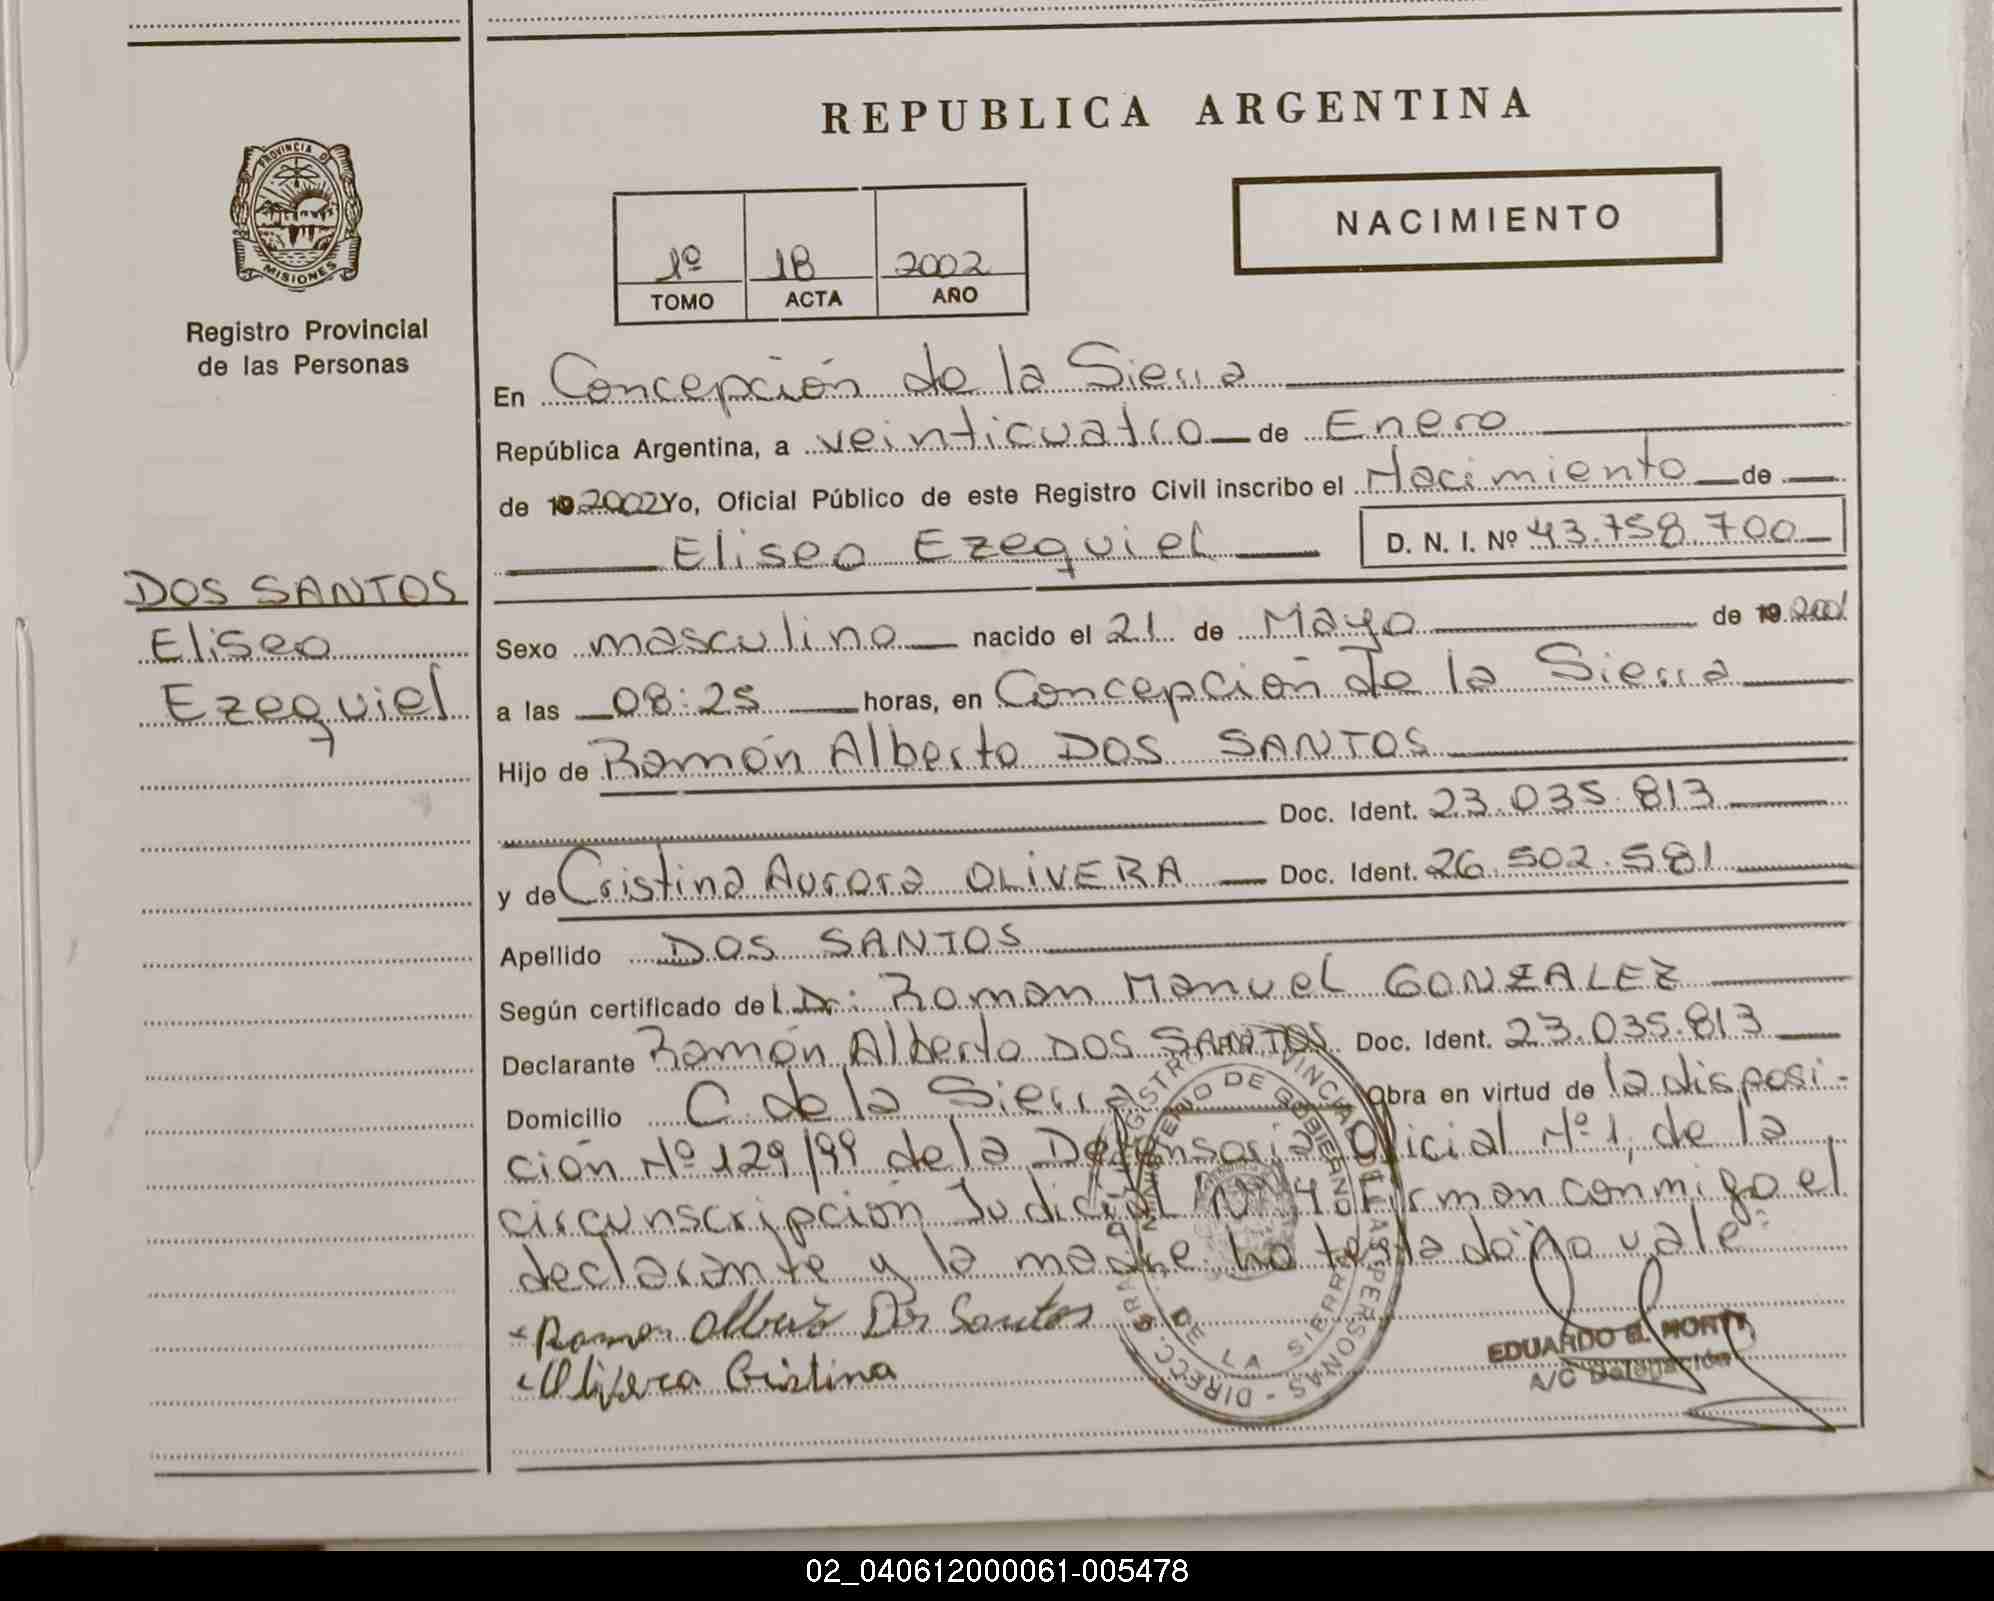 REPUBLICA ARGENTINA
PROVINCIA DE
MISIONES
Registro Provincial
de las Personas
1º 18 2002
TOMO ACTA AÑO
NACIMIENTO
En Concepción de la Sierra
República Argentina, a veinticuatro de Enero
de 19 2002 Yo, Oficial Público de este Registro Civil inscribo el Nacimiento de
Eliseo Ezequiel D. N. I. Nº 43.758.700
DOS SANTOS
Eliseo
Ezequiel
Sexo masculino nacido el 21 de Mayo de 19 2001
a las 08:25 horas, en Concepción de la Sierra
Hijo de Ramón Alberto DOS SANTOS
Doc. Ident. 23.035.813
y de Cristina Aurora OLIVERA Doc. Ident. 26.502.581
Apellido DOS SANTOS
Según certificado del Dr: Roman Manuel GONZALEZ
Declarante Ramón Alberto DOS SANTOS Doc. Ident. 23.035.813
Domicilio C. de la Sierra Obra en virtud de la disposi-
ción Nº 129/99 de la Defensoría Oficial Nº 1, de la
circunscripción Judicial Nº 4 Firman conmigo el
declarante y la madre. lo testado No vale:
Ramon Alberto Dos Santos
Olivera Cristina
MINISTERIO DE GOBIERNO
DE LA SIERRA
DE LAS PERSONAS - DIRECC. GRAL.
EDUARDO
A/C Delegación
02_040612000061-005478